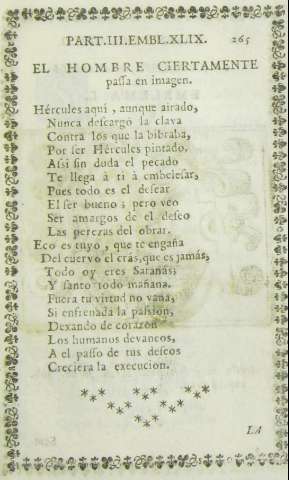 PART.III.EMBL.XLIX. 265
EL HOMBRE CIERTAMENTE
passa en imagen.
Hércules aqui, aunque airado,
Nunca descargó la clava
Contra los que la bibraba,
Por ser Hércules pintado.
Assi sin doda el pecado
Te llega à ti à embelesar,
Pues todo es el desear
El ser bueno; pero veo
Ser amargos de el deseo
Las perezas del obrar.
Eco es tuyo, que te engaña
Del cuervo el crás, que es jamás,
Todo oy eres Satanás;
Y santo todo mañana.
Fuera tu virtud no vana,
Si enfrenada la passion,
Dexando de corazon
Los humanos devaneos,
A el passo de tus deseos
Creciera la execucion.
LA